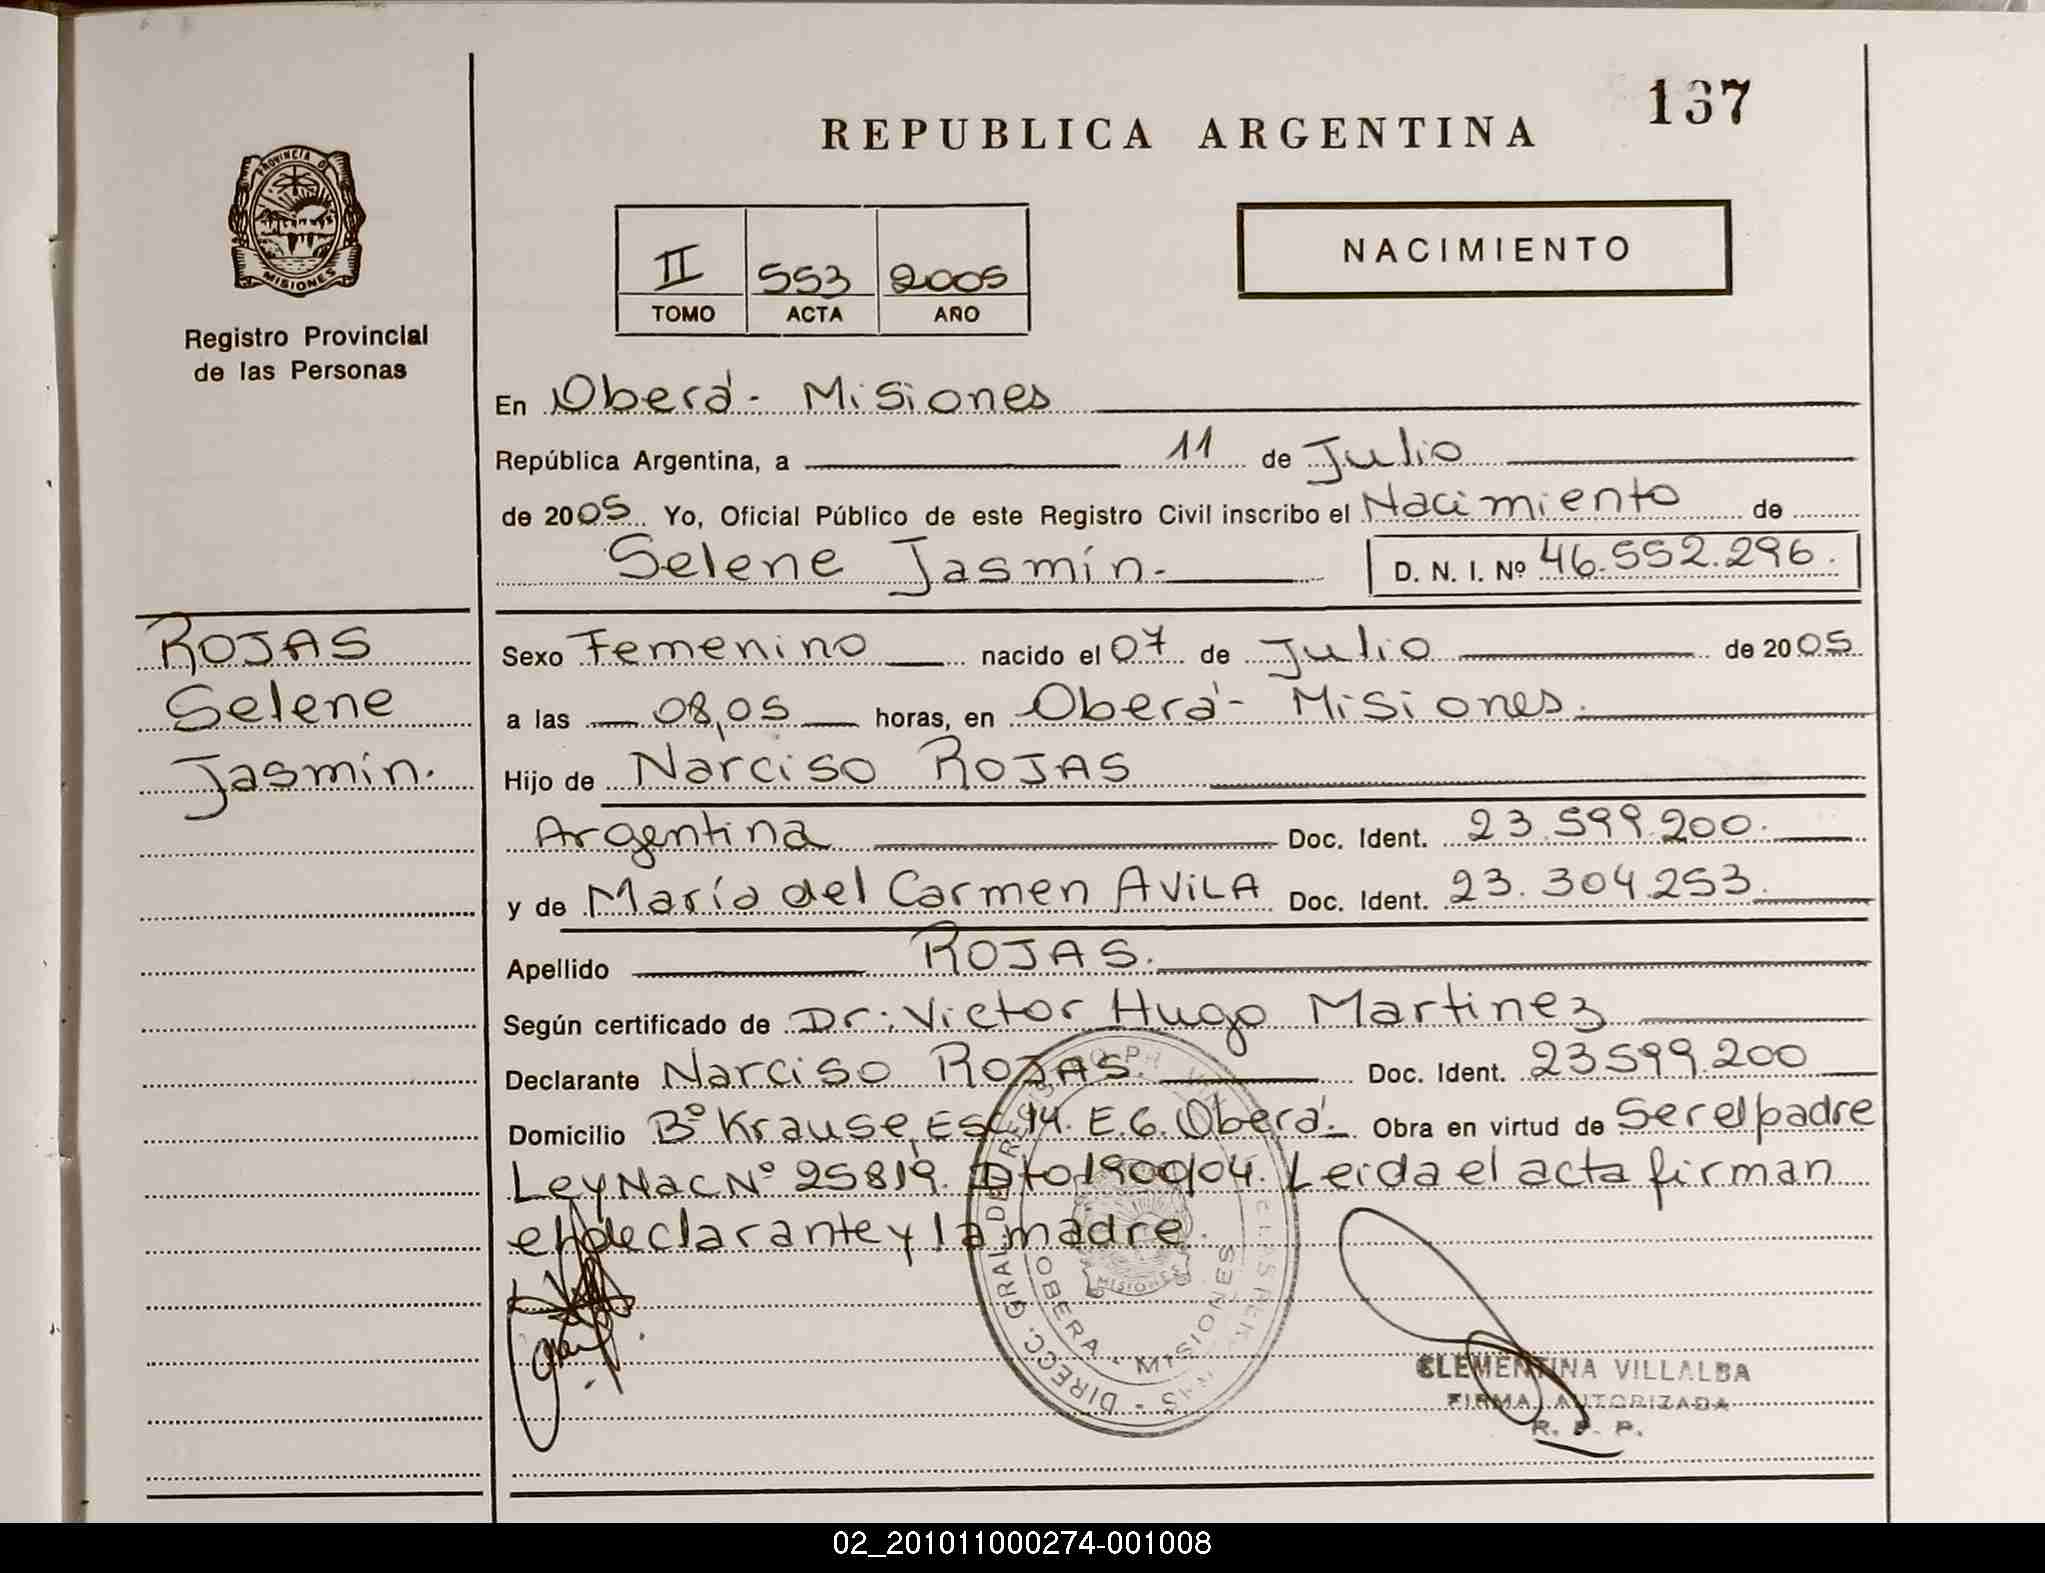 137
REPUBLICA ARGENTINA
PROVINCIA DE
MISIONES
Registro Provincial
de las Personas
II 553 2005
TOMO ACTA AÑO
NACIMIENTO
En Oberá - Misiones
República Argentina, a 11 de Julio
de 2005 Yo, Oficial Público de este Registro Civil inscribo el Nacimiento de
Selene Jasmín.- D. N. I. Nº 46.552.296.
ROJAS
Selene
Jasmín.
Sexo Femenino nacido el 07 de Julio de 2005
a las 08,05 horas, en Oberá - Misiones.
Hijo de Narciso ROJAS
Argentina Doc. Ident. 23.599.200.
y de María del Carmen AVILA Doc. Ident. 23.304.253.
Apellido ROJAS.
Según certificado de Dr: Victor Hugo Martinez
Declarante Narciso ROJAS. Doc. Ident. 23.599.200
Domicilio Bº Krause, Esc. 14. E.G. Oberá. Obra en virtud de Ser el padre
Ley Nac Nº 25819. Dto 1900/04. Leida el acta firman
el declarante y la madre.
DIRECC. GRAL DE REGISTRO
OBERA - MISIONES
MISIONES
CLEMENTINA VILLALBA
FIRMA AUTORIZADA
R. P. P.
02_201011000274-001008